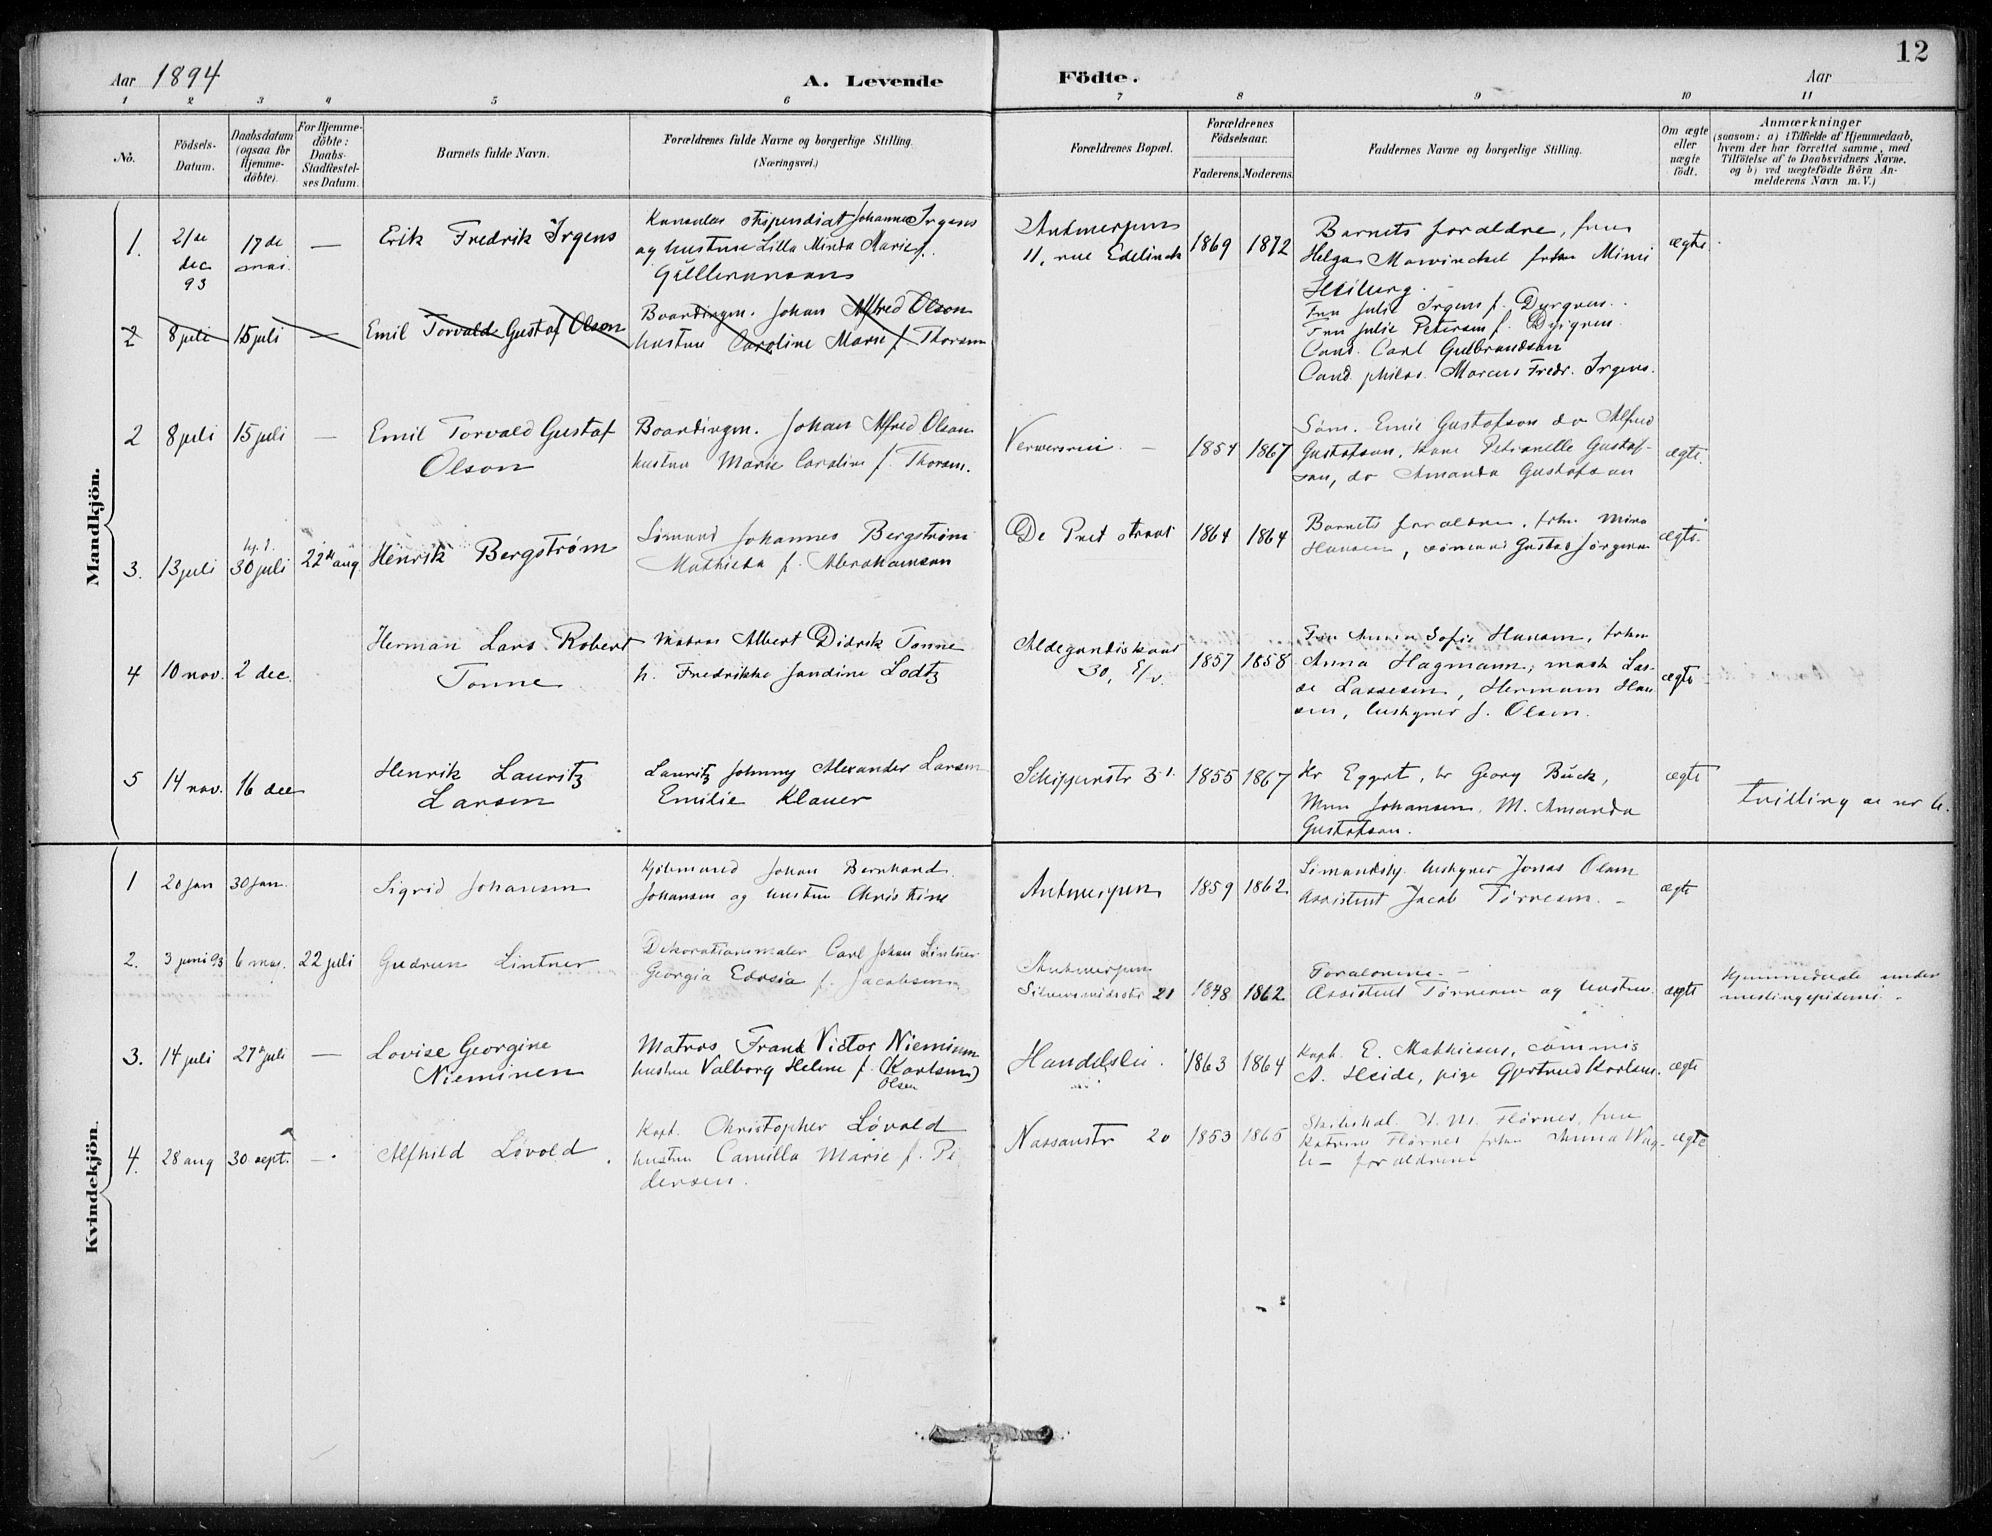 12
Aar 1894
A. Levende Födte.
Aar
1 2 3 4 5 6 7 8 9 10 11
No.
Födsels-
Datum.
Daabsdatum
(ogsaa for
Hjemme-
döbte).
For Hjemme-
döbte:
Daabs-
Stadfæstel-
ses Datum.
Barnets fulde Navn.
Forældrenes fulde Navne og borgerlige Stilling.
(Næringsvei.)
Forældrenes Bopæl.
Forældrenes
Födselsaar.
Faderens. Moderens.
Faddernes Navne og borgerlige Stilling.
Om ægte
eller
uægte
født.
Anmærkninger
(saasom: a) i Tilfælde af Hjemmedaab,
hvem der har forrettet samme, med
Tilføielse af to Daabsvidners Navne.
og b) ved uægtefödte Börn An-
melderens Navn m. V.)
Mandkjön.
1. 21de
dec
93
17de
mai.
—
Erik Fredrik Irgens
Konsulær stipendiat Johannes Irgens
og hustru Lilla Minda Marie f.
Antwerpen
11, rue Edelinck
1869 1872
Barnets forældre, fru
Helga Mowinckel frkn Mimi
Heiberg.
Fru Julie Irgens f. Dyrgren.
Fru Julie Petersen f. Dyrgren
Cand. Carl Gulbrandson
Cand. philos. Marcus Fredr. Irgens.
ægte
2 8 juli 15 juli — Emil Torvald Gustaf Olson
Boardingm. Johan Alfred Olson
hustru Caroline Marie f. Thorsen
2 8 juli 15 juli —
Emil Torvald Gustaf
Olson
Boardingm. Johan Alfred Olson
hustru Marie Caroline f. Thorsen.
Verversrui —
1854 1867
Søm. Emil Gustafson do Alfred
Gustafson, kone Petronelle Gustaf-
son, do Amanda Gustafson
ægte.
3. 13 juli
hj. d.
30 juli
22de aug.
Henrik Bergstrøm
Sømand Johannes Bergstrøm
Mathilda f. Abrahamson
De Pret straat
1864 1864
Barnets forældre, frkn Mina
Hansen, sømand Gustav Jörgensen
ægte.
4 10 nov. 2 dec.
Herman Lars Robert
Tonne
Matros Albert Didrik Tonne
h. Fredrikke Jandine Lodtz
Aldegondiskaai
30,
1857 1858
Fru Anna Sofie Hansen, frkn
Anna Hagmann, mask Las-
se Lassesen, Hermann Han-
sen, bestyrer J. Olsen.
ægte
5 14 nov. 16 dec
Henrik Lauritz
Larsen
Lauritz Johnny Alexander Larsen
Emilie Klauer
Schippersstr 31.
1855 1867
Hr Eggert, hr Georg Bück,
Johansen. M. Amanda
Gustafson.
ægte
tvilling se nr 6.
Kvindekjön.
1 20 jan 30 jan.
Sigrid Johansen
Kjøbmand Johan Bernhard
Johansen og hustru Christine
Antwerpen
1859 1862
Sömandshj. bestyrer Jonas Olsen
Assistent Jacob Tørresen. —
ægte
2. 3 juni 93 6 mai. 22 juli
Gudrun Lintner
Dekorationsmaler Carl Johan Lintner
Georgia Edvsia f. Jacobsen
Antwerpen
Silversmidstr 21
1848 1862
Forældrene. —
Assistent Tørresen og hustru
ægte
Hjemmedøbt under
meslingepidemi —
3. 14 juli 27de juli —
Lovise Georgine
Nieminen
Matros Frank Victor Nieminen
hustru Valborg Helene f. (Karlsen)
Olsen
Handelslei.
1863 1864
Kapt. E. Mathiesen, commis
A. Heide, pige Gjertrud Karlsen.
ægte
4. 28 aug 30 sept. —
Alfhild Løvold
Kapt. Christopher Løvold
hustru Camilla Marie f. Pe
dersen.
Nassaustr 20
1853 1865
Skibskal. H. M. Flørnes, fru
Katrine Flørnes frkn Anna
forældrene
ægte